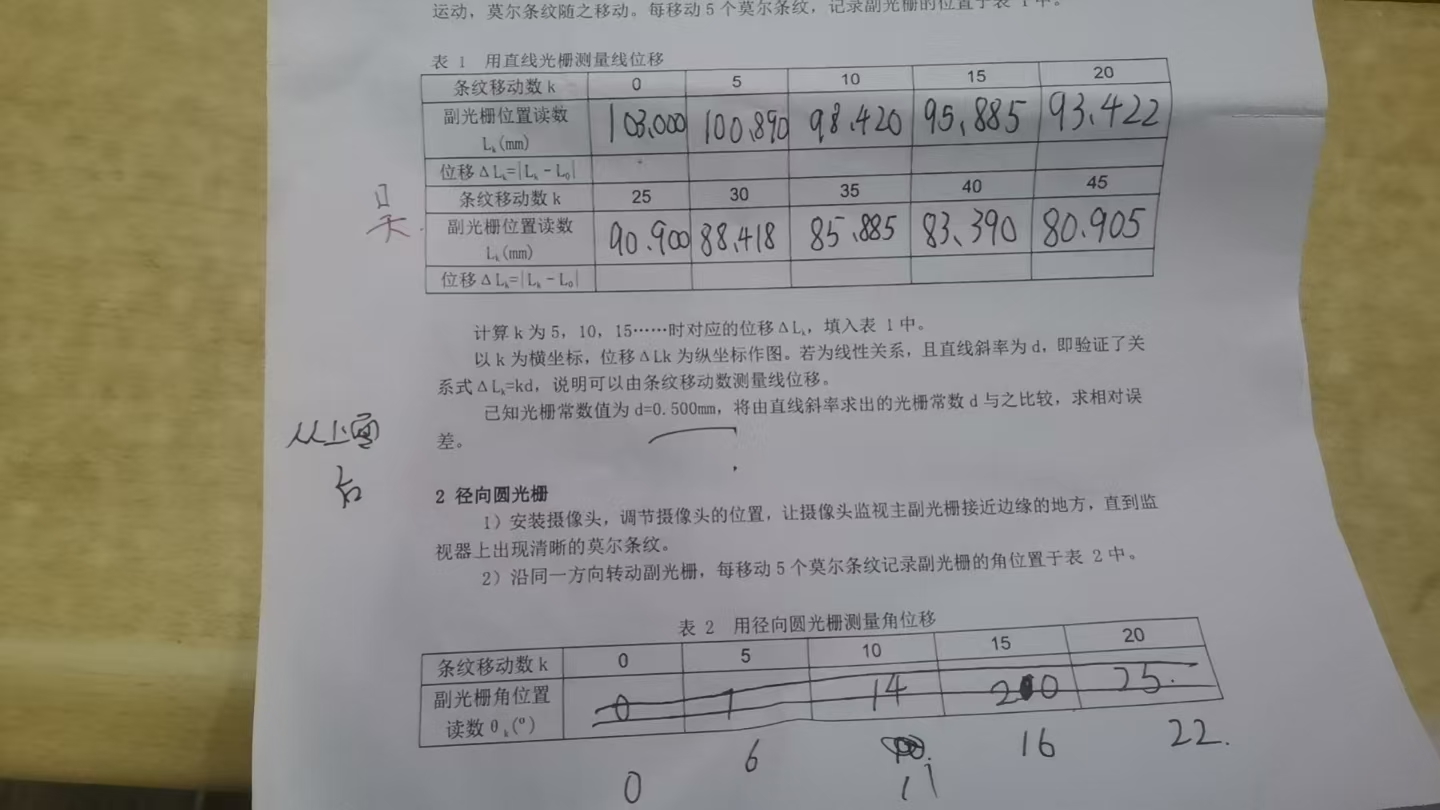 运动，莫尔条纹随之移动。每移动5个莫尔条纹，记录副光栅的位置于表 1中。
表 1 用直线光栅测量线位移
条纹移动数k 0 5 10 15 20
副光栅位置读数 Lk(mm) 103.000 100.890 98.420 95.885 93.422
位移ΔLk=|Lk-L0|
条纹移动数k 25 30 35 40 45
副光栅位置读数 Lk(mm) 90.900 88.418 85.885 83.390 80.905
位移ΔLk=|Lk-L0|
计算k为5，10，15……时对应的位移ΔLk，填入表 1中。
以k为横坐标，位移ΔLk为纵坐标作图。若为线性关系，且直线斜率为d，即验证了关
系式ΔLk=kd，说明可以由条纹移动数测量线位移。
已知光栅常数值为d=0.500mm，将由直线斜率求出的光栅常数d与之比较，求相对误
差。
从上面
后
2 径向圆光栅
1）安装摄像头，调节摄像头的位置，让摄像头监视主副光栅接近边缘的地方，直到监
视器上出现清晰的莫尔条纹。
2）沿同一方向转动副光栅，每移动5个莫尔条纹记录副光栅的角位置于表 2中。
表 2 用径向圆光栅测量角位移
条纹移动数k 0 5 10 15 20
副光栅角位置读数θk(º) 0 7 14 20 25.
0 6 11 16 22.